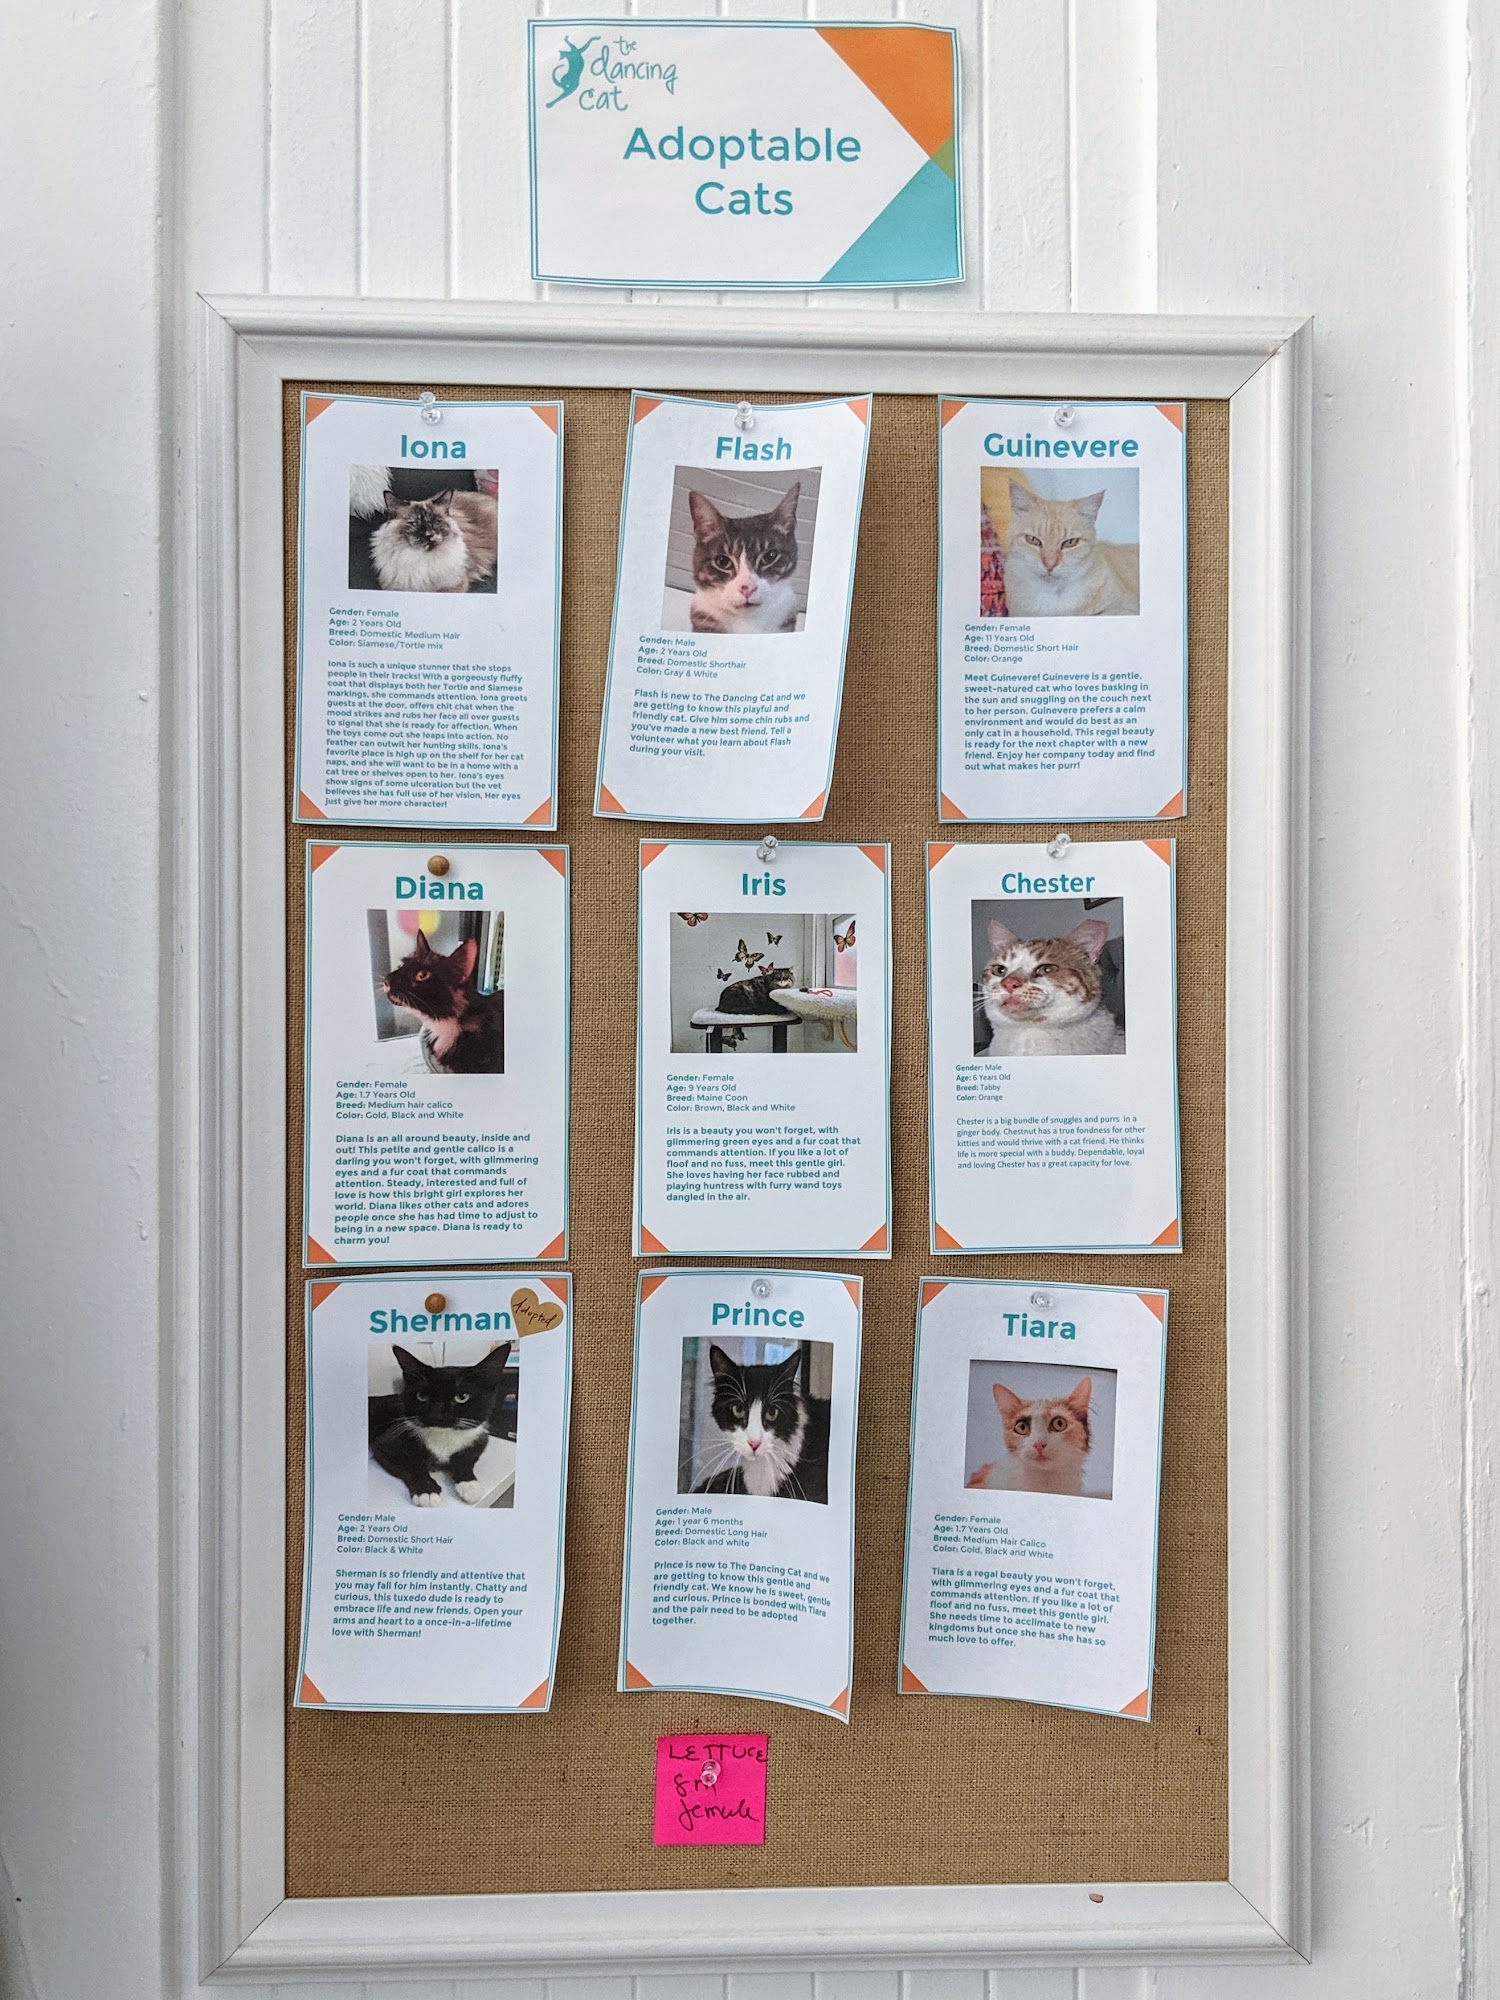 the
dancing
cat
Adoptable
Cats
Iona
Gender: Female
Age: 2 Years Old
Breed: Domestic Medium Hair
Color: Siamese/Tortie mix
Iona is such a unique stunner that she stops
people in their tracks! With a gorgeously fluffy
coat that displays both her Tortie and Siamese
markings, she commands attention. Iona greets
guests at the door, offers chit chat when the
mood strikes and rubs her face all over guests
to signal that she is ready for affection. When
the toys come out she leaps into action. No
feather can outwit her hunting skills. Iona's
favorite place is high up on the shelf for her cat
naps, and she will want to be in a home with a
cat tree or shelves open to her. Iona's eyes
show signs of some ulceration but the vet
believes she has full use of her vision. Her eyes
just give her more character!
Flash
Gender: Male
Age: 2 Years Old
Breed: Domestic Shorthair
Color: Gray & White
Flash is new to The Dancing Cat and we
are getting to know this playful and
friendly cat. Give him some chin rubs and
you've made a new best friend. Tell a
volunteer what you learn about Flash
during your visit.
Guinevere
Gender: Female
Age: 11 Years Old
Breed: Domestic Short Hair
Color: Orange
Meet Guinevere! Guinevere is a gentle,
sweet-natured cat who loves basking in
the sun and snuggling on the couch next
to her person. Guinevere prefers a calm
environment and would do best as an
only cat in a household. This regal beauty
is ready for the next chapter with a new
friend. Enjoy her company today and find
out what makes her purr!
Diana
Gender: Female
Age: 1.7 Years Old
Breed: Medium hair calico
Color: Gold, Black and White
Diana is an all around beauty, inside and
out! This petite and gentle calico is a
darling you won't forget, with glimmering
eyes and a fur coat that commands
attention. Steady, interested and full of
love is how this bright girl explores her
world. Diana likes other cats and adores
people once she has had time to adjust to
being in a new space. Diana is ready to
charm you!
Iris
Gender: Female
Age: 9 Years Old
Breed: Maine Coon
Color: Brown, Black and White
Iris is a beauty you won't forget, with
glimmering green eyes and a fur coat that
commands attention. If you like a lot of
floof and no fuss, meet this gentle girl.
She loves having her face rubbed and
playing huntress with furry wand toys
dangled in the air.
Chester
Gender: Male
Age: 6 Years Old
Breed: Tabby
Color: Orange
Chester is a big bundle of snuggles and purrs in a
ginger body. Chestnut has a true fondness for other
kitties and would thrive with a cat friend. He thinks
life is more special with a buddy. Dependable, loyal
and loving Chester has a great capacity for love.
Sherman
Adopted
Gender: Male
Age: 2 Years Old
Breed: Domestic Short Hair
Color: Black & White
Sherman is so friendly and attentive that
you may fall for him instantly. Chatty and
curious, this tuxedo dude is ready to
embrace life and new friends. Open your
arms and heart to a once-in-a-lifetime
love with Sherman!
Prince
Gender: Male
Age: 1 year 6 months
Breed: Domestic Long Hair
Color: Black and white
Prince is new to The Dancing Cat and we
are getting to know this gentle and
friendly cat. We know he is sweet, gentle
and curious. Prince is bonded with Tiara
and the pair need to be adopted
together.
Tiara
Gender: Female
Age: 1.7 Years Old
Breed: Medium Hair Calico
Color: Gold, Black and White
Tiara is a regal beauty you won't forget,
with glimmering eyes and a fur coat that
commands attention. If you like a lot of
floof and no fuss, meet this gentle girl.
She needs time to acclimate to new
kingdoms but once she has she has so
much love to offer.
LETTUCE
8m
female